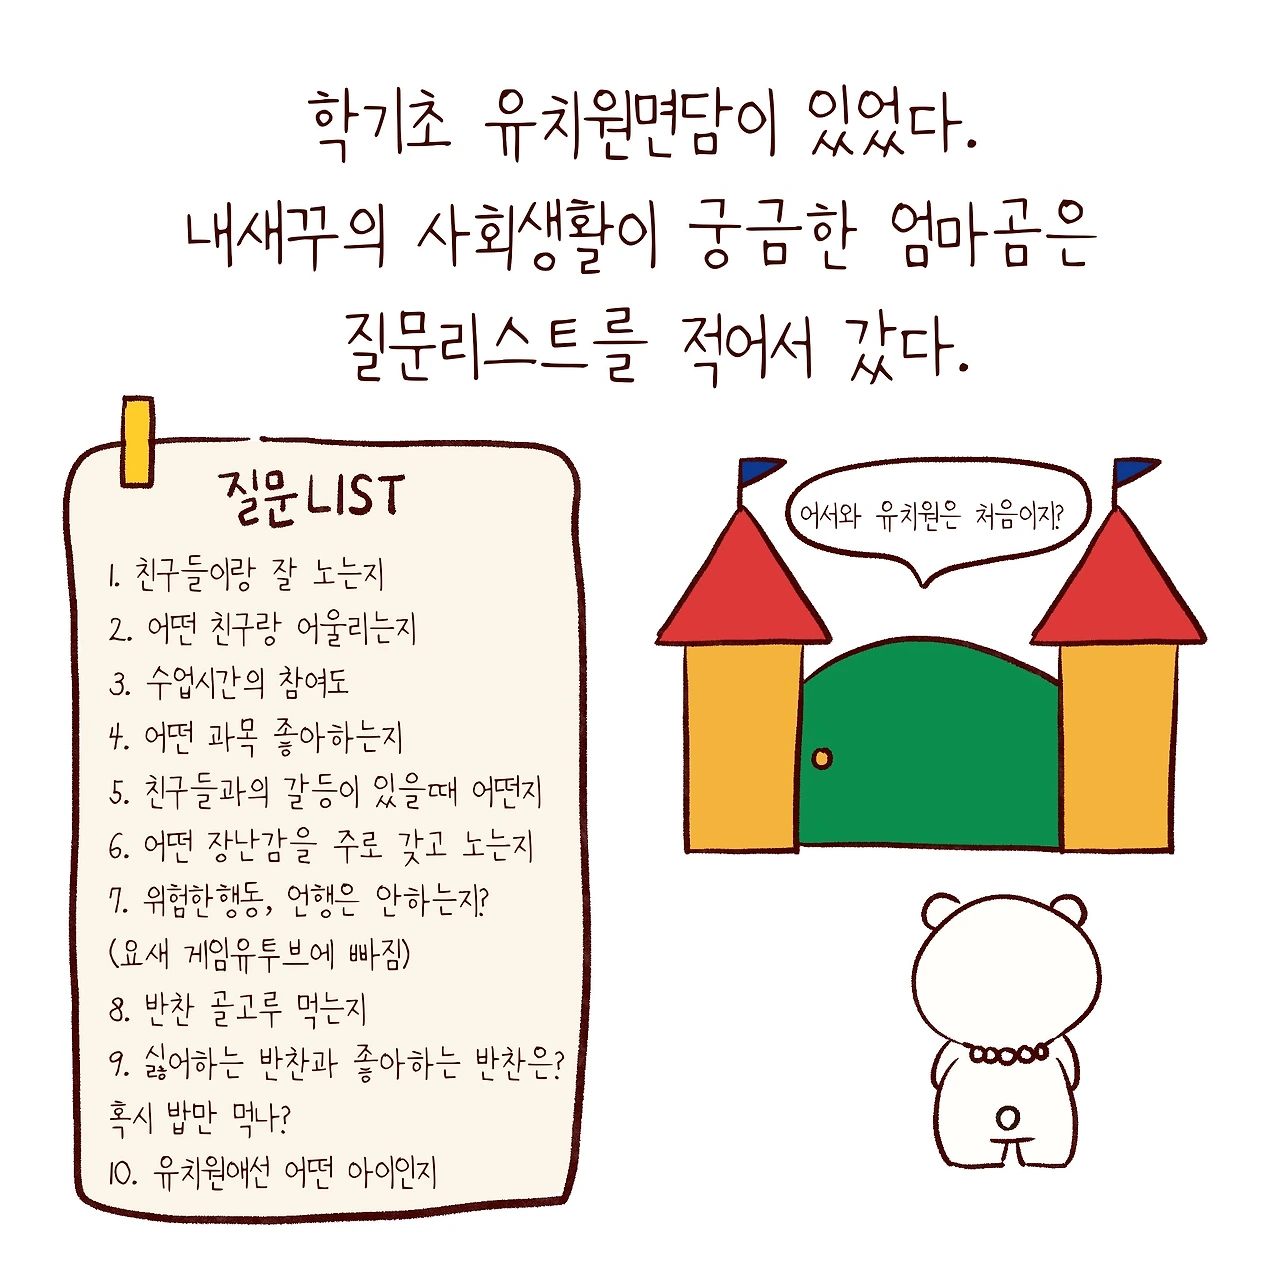 학기초 유치원면담이 있었다.
내새꾸의 사회생활이 궁금한 엄마곰은
질문리스트를 적어서 갔다.
질문LIST
1. 친구들이랑 잘 노는지
2. 어떤 친구랑 어울리는지
3. 수업시간의 참여도
4. 어떤 과목 좋아하는지
5. 친구들과의 갈등이 있을때 어떤지
6. 어떤 장난감을 주로 갖고 노는지
7. 위험한행동, 언행은 안하는지?
(요새 게임유투브에 빠짐)
8. 반찬 골고루 먹는지
9. 싫어하는 반찬과 좋아하는 반찬은?
혹시 밥만 먹나?
10. 유치원애선 어떤 아이인지
어서와 유치원은 처음이지?